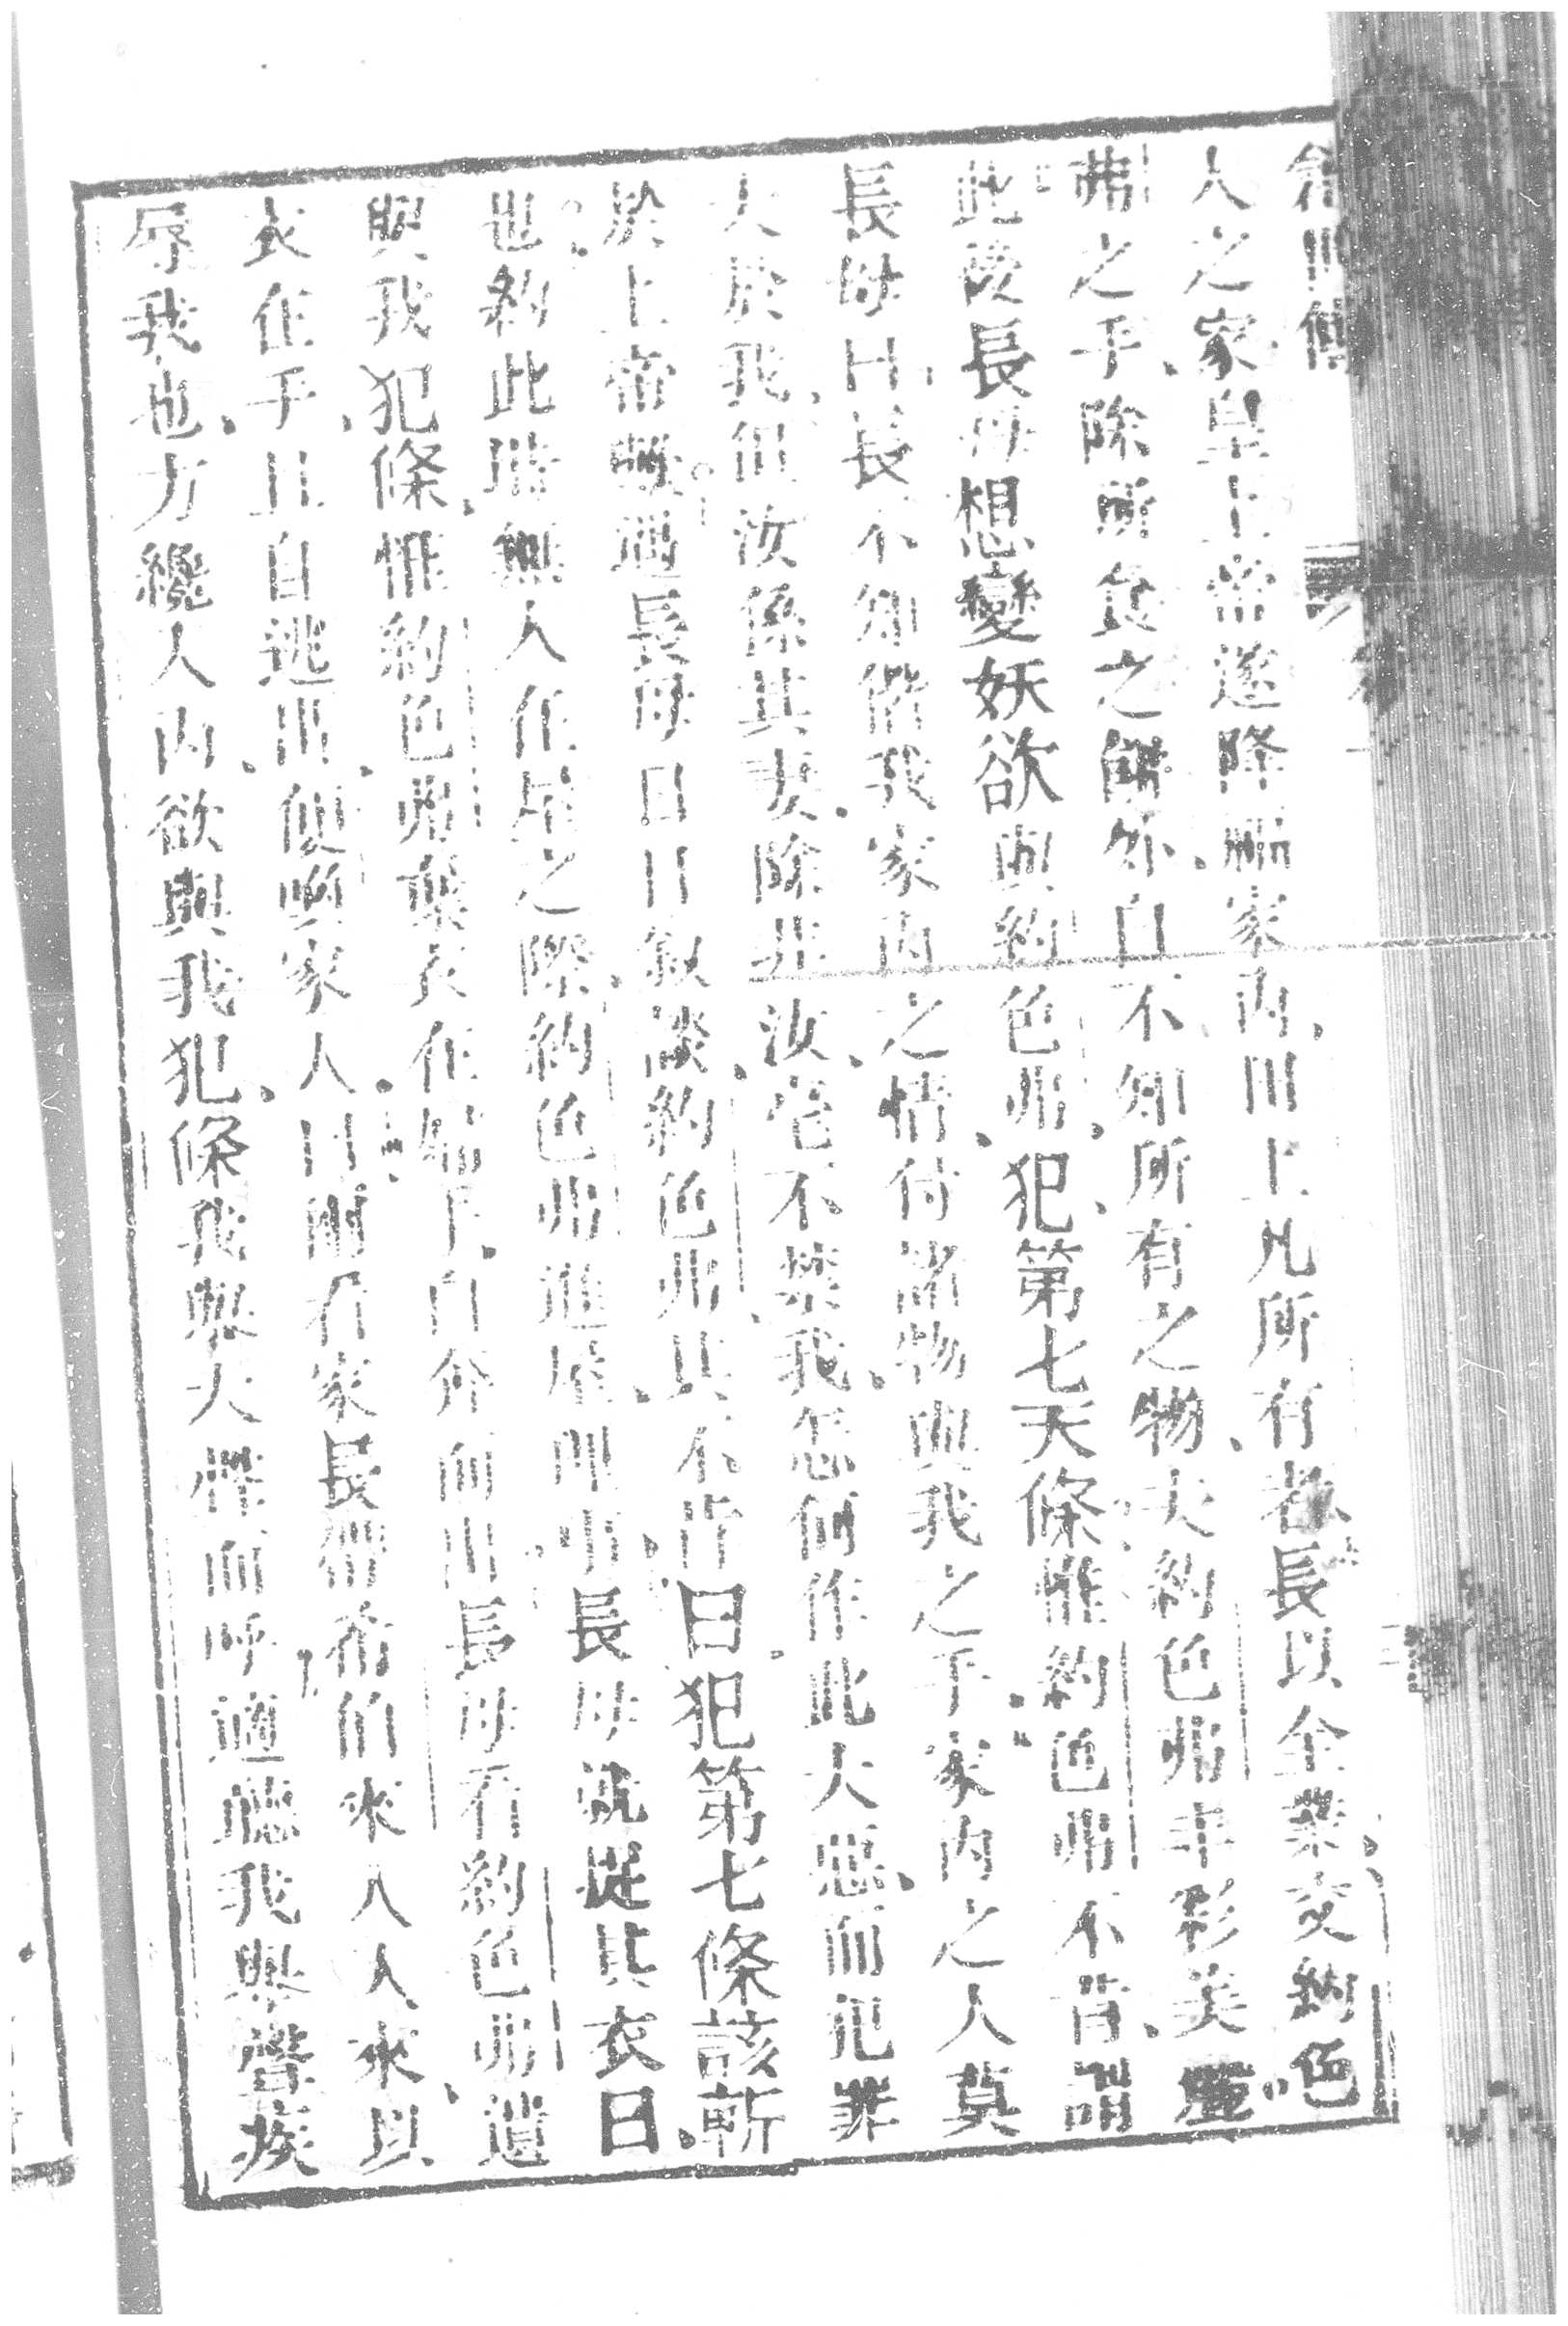 人之家皇上帝遂降福家內田上凡所有者長以全業交約色
弗之手除所食之餅外自不知所有之物夫約色弗丰彩美麗
此後長母想變妖欲與約色弗犯第七天條惟約色弗不肯謂
長母曰長不知偕我家內之情付諸物與我之手家內之人莫
大於我但汝係其妻除非汝宅不禁我怎何作此大惡而犯罪
於上帝乎適長母日日敘談約色弗其不肯曰犯第七條該斬
也約此時無人在屋之際約色弗進屋理事長母就捉其衣曰
與我犯條惟約色弗棄衣在婦手自奔而出長母看約色弗遺
衣在手且自逃出便喚家人曰爾看家長帶希伯來人入來以
辱我也方纔人內欲與我犯條我舉大聲而呼適聽我舉聲疾